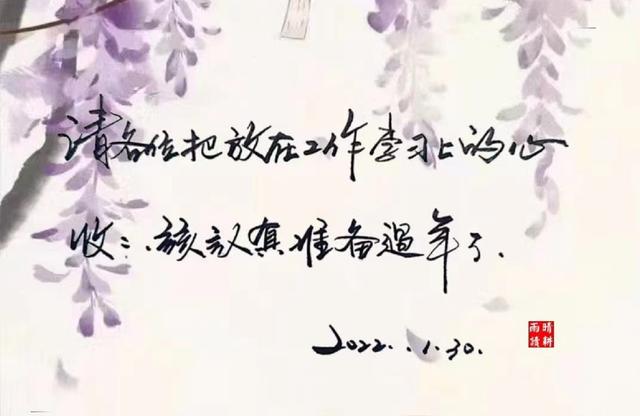 请各位把放在工作学习上的心
收〻.该认真准备過年了.
2022.1.30.
晴耕
雨読